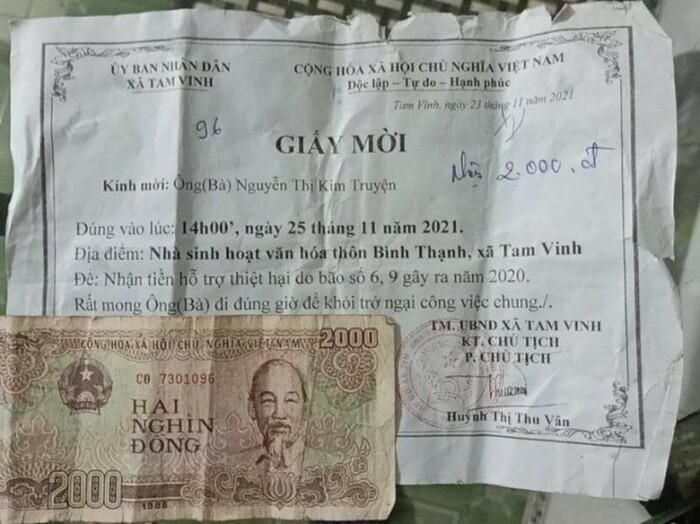 ỦY BAN NHÂN DÂN
XÃ TAM VINH
CỘNG HÒA XÃ HỘI CHỦ NGHĨA VIỆT NAM
Độc lập – Tự do – Hạnh phúc
Tam Vinh, ngày 23 tháng 11 năm 2021
96
GIẤY MỜI
nhận 2.000.đ
Kính mời: Ông(Bà) Nguyễn Thị Kim Truyện
Đúng vào lúc: 14h00’, ngày 25 tháng 11 năm 2021.
Địa điểm: Nhà sinh hoạt văn hóa thôn Bình Thạnh, xã Tam Vinh
Để: Nhận tiền hỗ trợ thiệt hại do bão số 6, 9 gây ra năm 2020.
Rất mong Ông(Bà) đi đúng giờ để khỏi trở ngại công việc chung./.
TM. UBND XÃ TAM VINH
KT. CHỦ TỊCH
P. CHỦ TỊCH
Huỳnh Thị Thu Vân
CỘNG HÒA XÃ HỘI CHỦ NGHĨA VIỆT NAM
2000
CO 7301096
HAI
NGHÌN
ĐỒNG
2000
1988